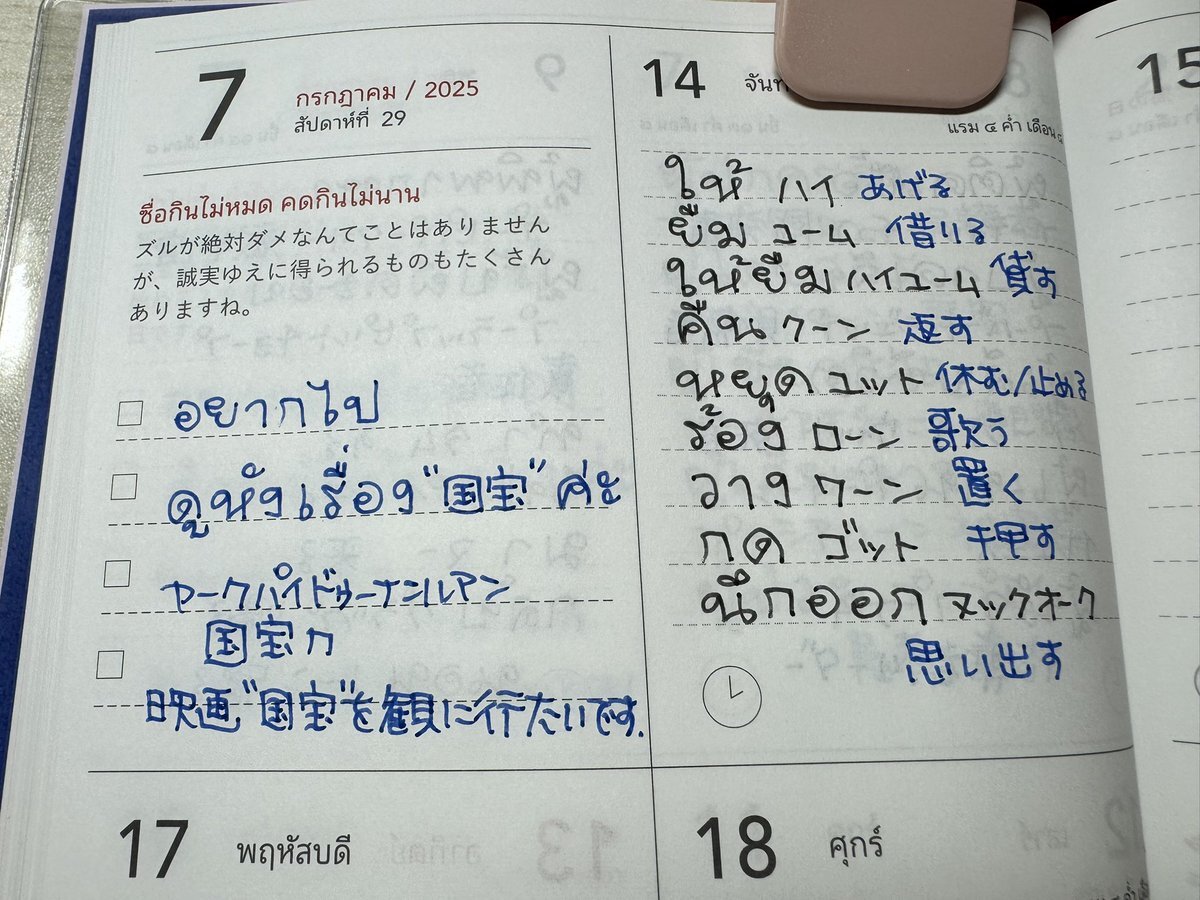 7
กรกฎาคม / 2025
สัปดาห์ที่ 29
ซื่อกินไม่หมด คดกินไม่นาน
ズルが絶対ダメなんてことはありません
が、誠実ゆえに得られるものもたくさん
ありますね。
อยากไป
ดูหังเรื่อง "国宝" ค่ะ
ヤークパイドゥーナンルアン
国宝カ
映画"国宝"を観に行たいです.
14
แรม ๔ ค่ำ เดือน
ให้ ハイ あげる
ยืม ユーム 借りる
ให้ยืม ハイユーム 貸す
คืน クーン 返す
หยุด ユット 休む/止める
ร้อง ローン 歌う
วาง ワーン 置く
กด ゴット 押す
นึกออก ヌックオーク
思い出す
15
17 พฤหัสบดี
18 ศุกร์